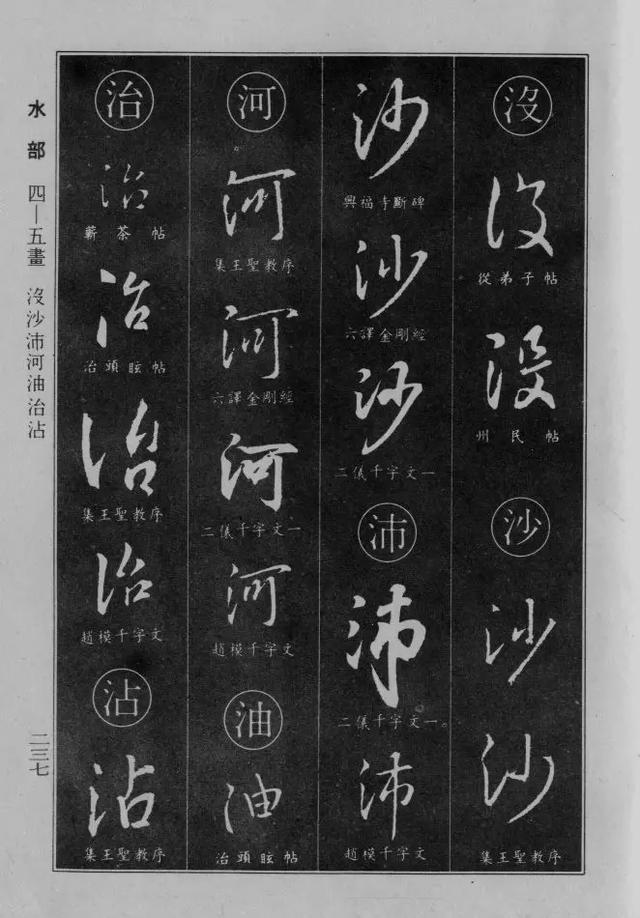 沒
沒
從弟子帖
沒
州民帖
沙
沙
沙
集王聖教序
沙
興福寺斷碑
沙
六譯金剛經
沙
二儀千字文一
沛
沛
二儀千字文一
沛
趙模千字文
河
河
集王聖教序
河
六譯金剛經
河
二儀千字文一
河
趙模千字文
油
油
治頭眩帖
治
治
蘄茶帖
治
治頭眩帖
治
集王聖教序
治
趙模千字文
沾
沾
集王聖教序
水部 四—五畫 沒沙沛河油治沾
二三七